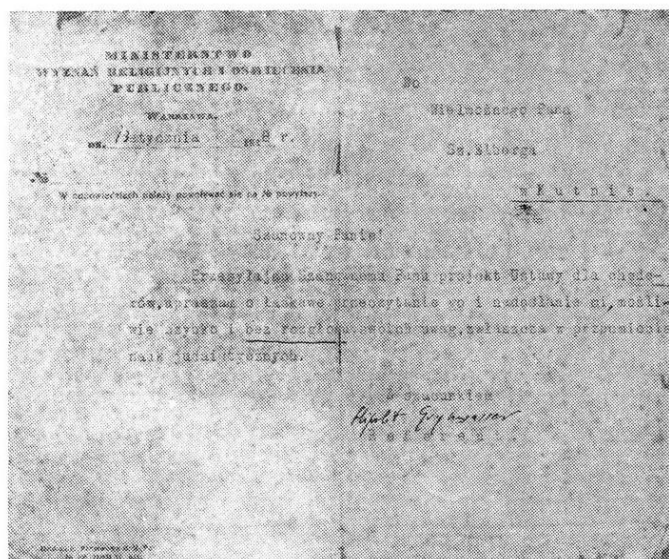 MINISTERSTWO
WYZNAŃ RELIGIJNYCH I OŚWIECENIA
PUBLICZNEGO.
WARSZAWA.
DN. stycznia 1918 r.
W odpowiedziach należy powoływać się na № powyższy.
Do
Wielmożnego Pana
Sz.Elberga
w Kutnie.
Szanowny Panie!
Przesyłając Szanownemu Panu projekt Ustawy dla chede-
rów, upraszam o łaskawe przeczytanie go i nadesłanie mi, możli
wie szybko i bez uwag, zwłaszcza w przedmiocie
nauk judaistycznych.
Z szacunkiem
Hipolit Grynwasser
Referent.